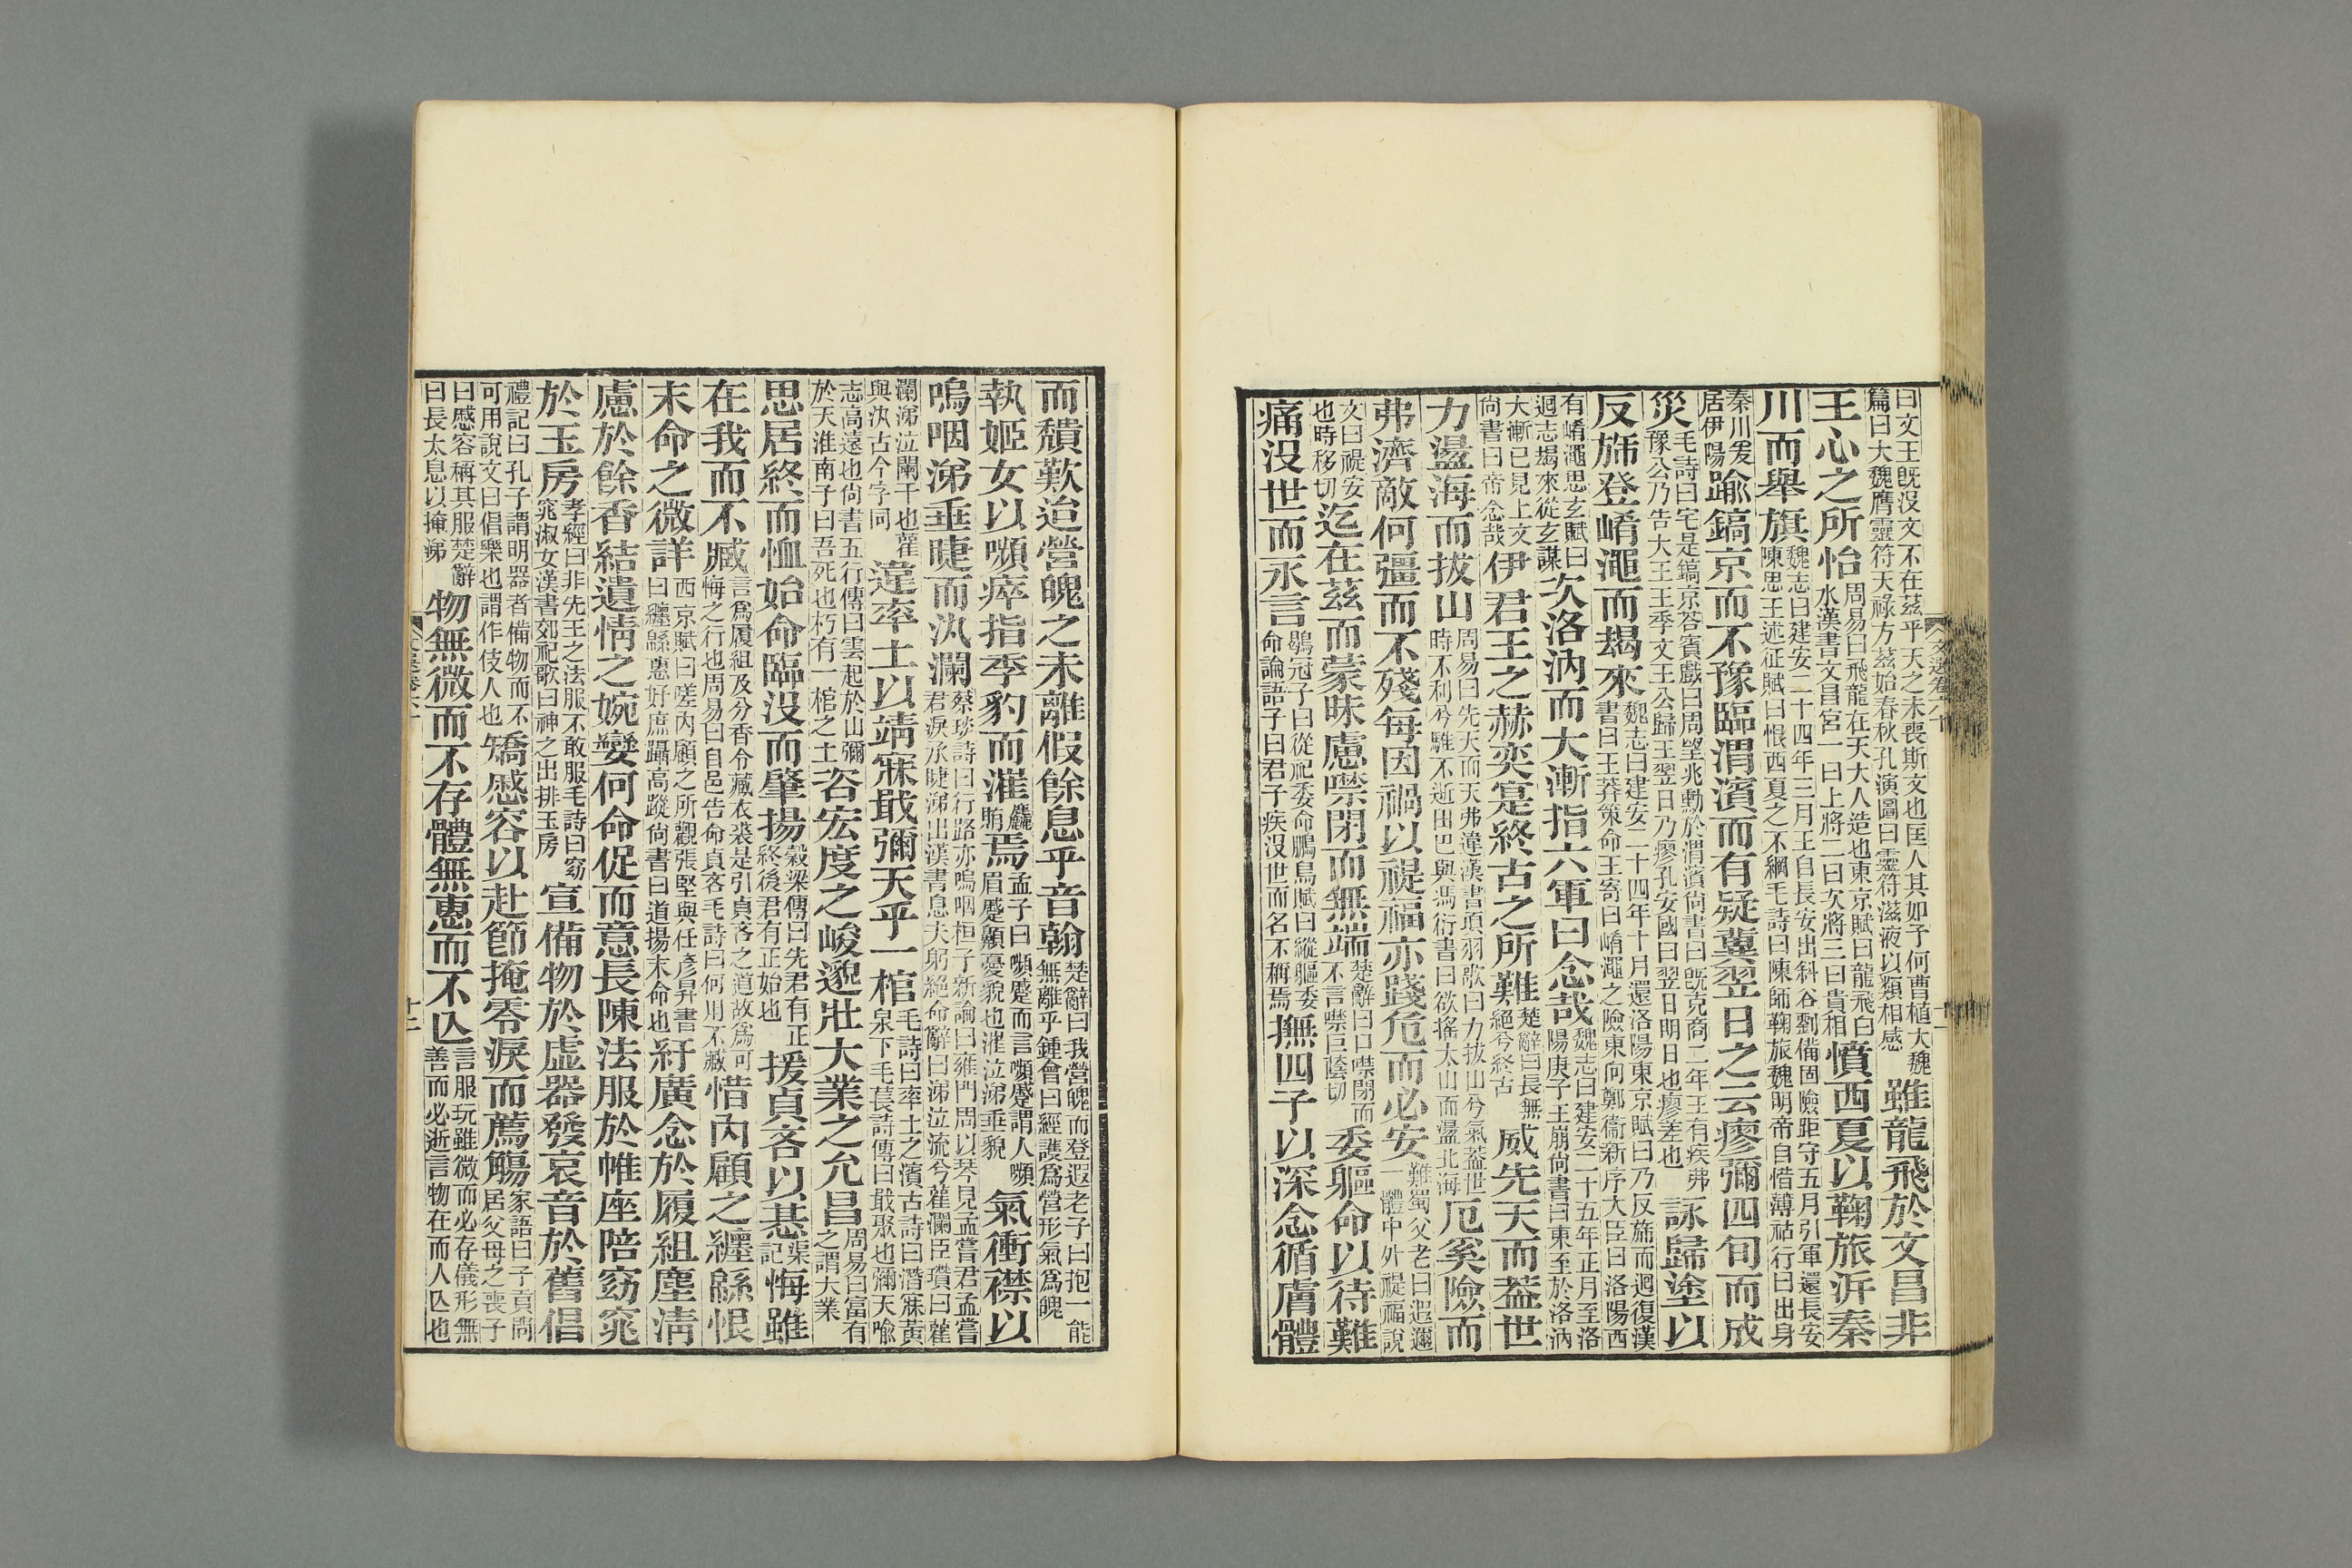 曰文王既没文不在茲乎天之未喪斯文也匡人其如予何曹植大魏
篇曰大魏膺靈符天祿方茲始春秋孔演圖曰靈符滋液以類相感
雖龍飛於文昌非
王心之所怡
周易曰飛龍在天大人造也東京賦曰龍飛白
水漢書文昌宮一曰上將二曰次將三曰貴相
憤西夏以鞠旅泝秦
川而舉旗
魏志曰建安二十四年三月王自長安出斜谷劉備固險距守五月引軍還長安
陳思王述征賦曰恨西夏之不綱毛詩曰陳師鞠旅魏明帝自惜薄祜行曰出身
秦川爰
居伊陽
踰鎬京而不豫臨渭濱而有疑冀翌日之云瘳彌四旬而成
災
毛詩曰宅是鎬京荅賓戲曰周望兆動於渭濱尚書曰旣克商二年王有疾弗
豫公乃告大王王季文王公歸王翌日乃瘳孔安國曰翌日明日也瘳差也
詠歸塗以
反旆登崤澠而朅來
魏志曰建安二十四年十月還洛陽東京賦曰乃反旆而迴復漢
書曰王莽策命王寄曰崤澠之險東向鄭衞新序大臣曰洛陽西
有崤澠思玄賦曰
迴志朅來從玄諆
次洛汭而大漸指六軍曰念哉
魏志曰建安二十五年正月至洛
陽庚子王崩尚書曰東至於洛汭
大漸已見上文
尚書曰帝念哉
伊君王之赫奕寔終古之所難
楚辭曰長無
絕兮終古
威先天而葢世
力盪海而拔山
周易曰先天而天弗違漢書項羽歌曰力拔山兮氣葢世
時不利兮騅不逝田巴與馮衍書曰欲搖太山而盪北海
厄奚險而
弗濟敵何彊而不殘每因禍以禔福亦踐危而必安
難蜀父老曰遐邇
一體中外禔福說
文曰禔安
也時移切
迄在茲而蒙昧慮噤閉而無端
楚辭曰口噤閉而
不言噤巨蔭切
委軀命以待難
痛没世而永言
鶡冠子曰從祀委命鵩鳥賦曰縱軀委
命論語子曰君子疾没世而名不稱焉
撫四子以深念循膚體
而頹歎迨營魄之未離假餘息乎音翰
楚辭曰我營魄而登遐老子曰抱一能
無離乎鍾會曰經護爲營形氣爲魄
執姬女以嚬瘁指季豹而漼焉
孟子曰嚬蹙而言嚬蹙謂人嚬
眉蹙顣憂貌也漼泣涕垂貌
氣衝襟以
嗚咽涕垂睫而汍瀾
蔡琰詩曰行路亦嗚咽桓子新論曰雍門周以琴見孟嘗君孟嘗
君淚承睫涕出漢書息夫躬絕命辭曰涕泣流兮萑瀾臣瓚曰萑
瀾涕泣闌干也萑
與汍古今字同
違率土以靖寐戢彌天乎一棺
毛詩曰率土之濱古詩曰潛寐黃
泉下毛萇詩傳曰戢聚也彌天喻
志高遠也尚書五行傳曰雲起於山彌
於天淮南子曰吾死也朽有一棺之土
咨宏度之峻邈壯大業之允昌
周易曰富有
之謂大業
思居終而恤始命臨没而肇揚
穀梁傳曰先君有正
終後君有正始也
援貞吝以惎
悔雖
在我而不臧
言爲履組及分香令藏衣裘是引貞吝之道故爲可
悔之行也周易曰自邑告命貞吝毛詩曰何用不臧
惜內顧之纏緜恨
末命之微詳
西京賦曰嗟內顧之所觀張堅與任彥昇書
曰纏緜惠好庶躡高蹤尚書曰道揚末命也
紆廣念於履組塵清
慮於餘香結遺情之婉孌何命促而意長陳法服於帷座陪窈窕
於玉房
孝經曰非先王之法服不敢服毛詩曰窈
窕淑女漢書郊祀歌曰神之出排玉房
宣備物於虛器發哀音於舊倡
禮記曰孔子謂明器者備物而不
可用說文曰倡樂也謂作伎人也
矯慼容以赴節掩零淚而薦觴
家語曰子貢問
居父母之喪子
曰慼容稱其服楚辭
曰長太息以掩涕
物無微而不存體無惠而不亾
言服玩雖微而必存儀形無
善而必逝言物在而人亾也